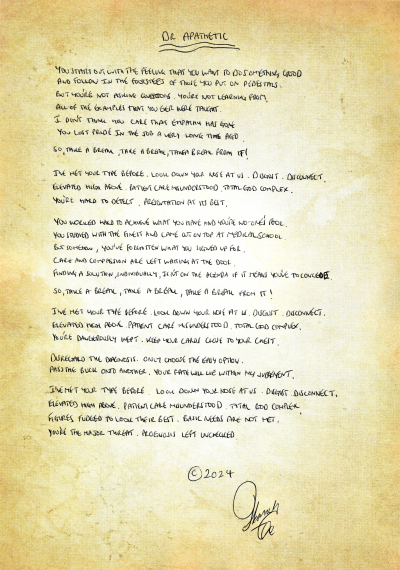 DR APATHETIC
YOU STARTED OUT WITH THE FEELING THAT YOU WANT TO DO SOMETHING GOOD
AND FOLLOW IN THE FOOTSTEPS OF THOSE YOU PUT ON PEDESTALS.
BUT YOU'RE NOT ASKING QUESTIONS. YOU'RE NOT LEARNING FROM,
ALL OF THE EXAMPLES THAT YOU EVER WERE TAUGHT.
I DON'T THINK YOU CARE THAT EMPATHY HAS GONE
YOU LOST PRIDE IN THE JOB A VERY LONG TIME AGO
SO, TAKE A BREAK, TAKE A BREAK, TAKE A BREAK FROM IT!
I'VE MET YOUR TYPE BEFORE. LOOK DOWN YOUR NOSE AT US. DISGUST. DISCONNECT.
ELEVATED HIGH ABOVE. PATIENT CARE MISUNDERSTOOD. TOTAL GOD COMPLEX.
YOU'RE HARD TO DETECT. AT ITS BEST.
YOU WORKED HARD TO ACHIEVE WHAT YOU HAVE AND YOU'RE NO-ONE'S FOOL.
YOU STUDIED WITH THE FINEST AND CAME OUT ON TOP AT MEDICAL SCHOOL.
BUT SOMEHOW, YOU'VE FORGOTTEN WHAT YOU SIGNED UP FOR.
CARE AND COMPASSION ARE LEFT WAITING AT THE DOOR.
FINDING A SOLUTION, INDIVIDUALLY, ISN'T ON THE AGENDA IF IT MEANS YOU'VE TO CONCEDE.
SO, TAKE A BREAK, TAKE A BREAK, TAKE A BREAK FROM IT!
I'VE MET YOUR TYPE BEFORE. LOOK DOWN YOUR NOSE AT US. DISGUST. DISCONNECT.
ELEVATED HIGH ABOVE. PATIENT CARE MISUNDERSTOOD. TOTAL GOD COMPLEX.
YOU'RE DANGEROUSLY INEPT. KEEP YOUR CARDS CLOSE TO YOUR CHEST.
DISREGARD THE DIAGNOSIS. ONLY CHOOSE THE EASY OPTION.
PASS THE BUCK ONTO ANOTHER. YOUR FATE WILL LIE WITHIN MY JUDGEMENT.
I'VE MET YOUR TYPE BEFORE. LOOK DOWN YOUR NOSE AT US. DISGUST. DISCONNECT.
ELEVATED HIGH ABOVE. PATIENT CARE MISUNDERSTOOD. TOTAL GOD COMPLEX.
FIGURES FUDGED TO LOOK THEIR BEST. BASIC NEEDS ARE NOT MET.
YOU'RE THE MAJOR THREAT. PROGNOSIS LEFT UNCHECKED
© 2024